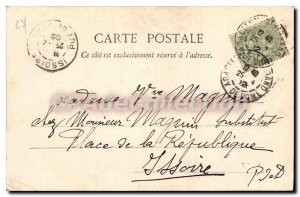 67
CARTE POSTALE
Ce côté est exclusivement réservé à l'adresse.
ISSOIRE
Madame Vve Magnin
chez Monsieur Magnin Substitut
Place de la République
Issoire
P.de D